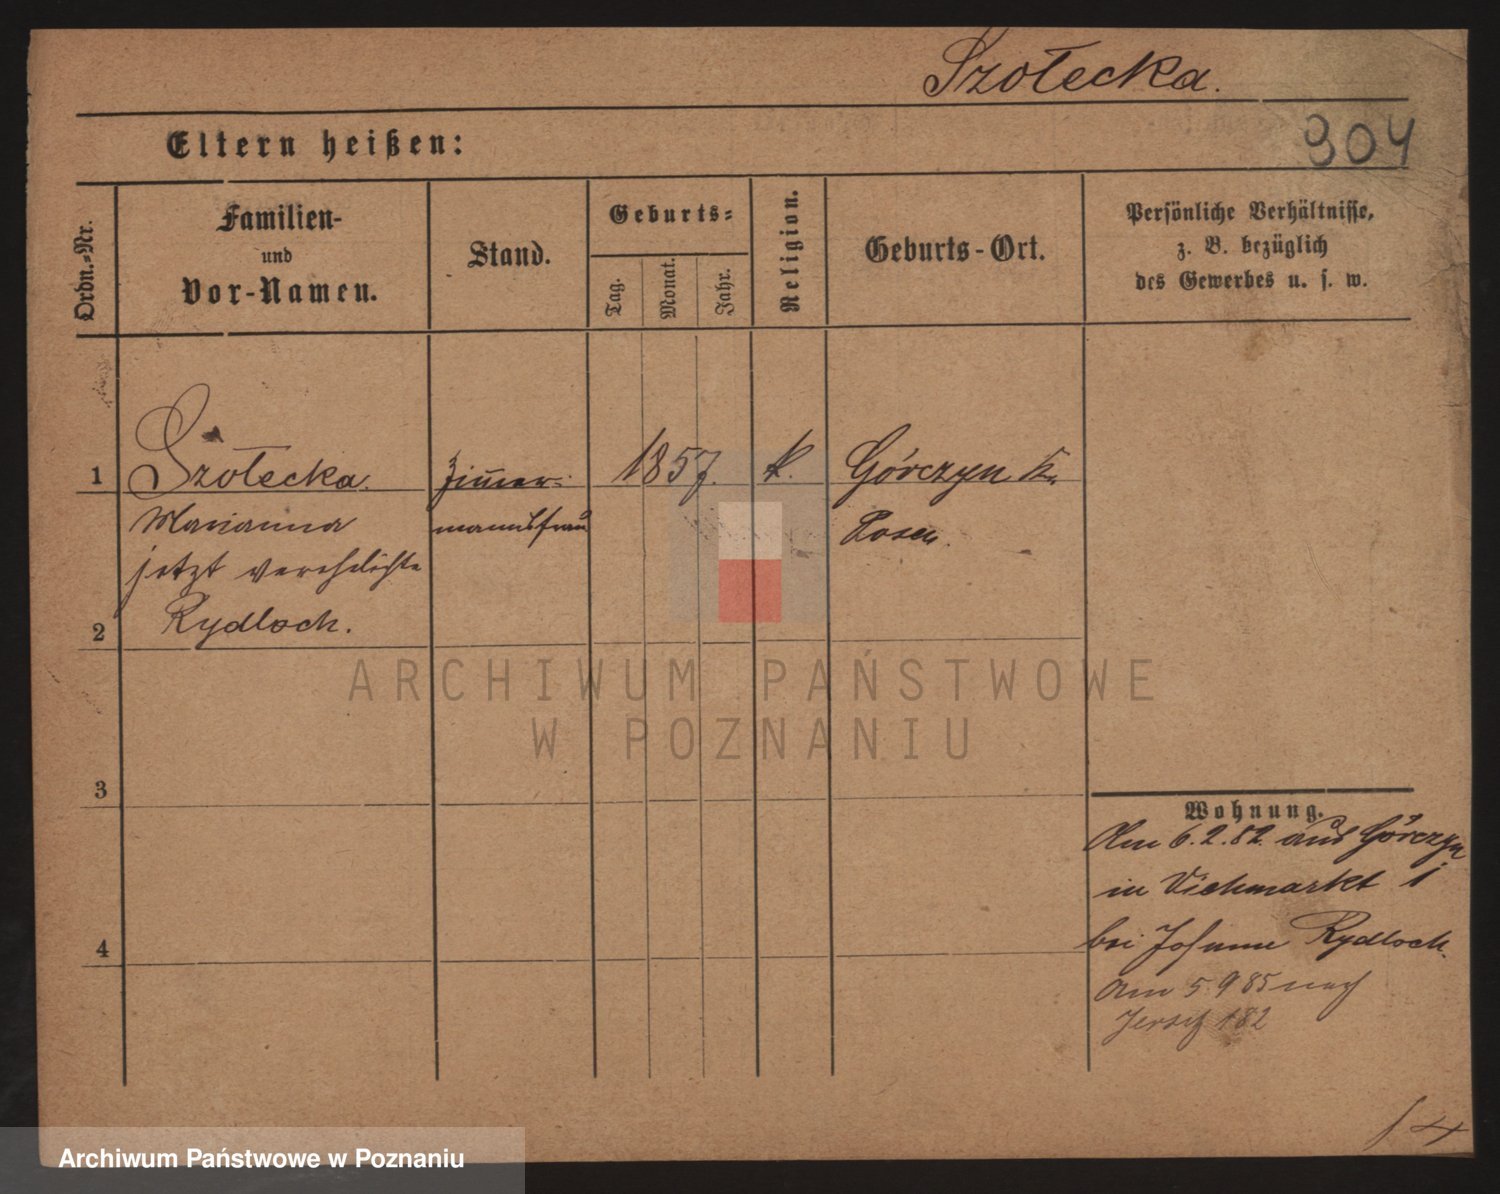 Szołecka.
904
Eltern heißen:
Ordn.-Nr.
Familien-
und
Vor-Namen.
Stand.
Geburts-
Tag.
Monat.
Jahr.
Religion.
Geburts-Ort.
Persönliche Verhältnisse,
z. B. bezüglich
des Gewerbes u. s. w.
1
Szołecka.
Zim̅er-
1857.
k.
Górczyn Kr.
Marianna
mannsfrau
Posen.
jetzt verehelichte
Rydloch.
2
ARCHIWUM PAŃSTWOWE
W POZNANIU
3
4
Wohnung.
Am 6.2.82. aus Górczyn
in Viehmarkt 1
bei Johann Rydloch.
Am 5 9 85 nach
Jersitz 182
Archiwum Państwowe w Poznaniu